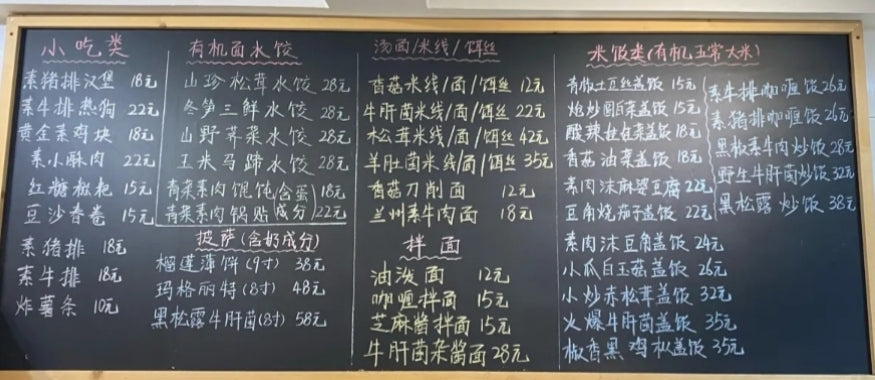 小吃类
素猪排汉堡 18元
素牛排热狗 22元
黄金素鸡块 18元
素小酥肉 22元
红糖糍粑 15元
豆沙春卷 15元
素猪排 18元
素牛排 18元
炸薯条 10元
有机面水饺
山珍松茸水饺 28元
冬笋三鲜水饺 28元
山野荠菜水饺 28元
玉米马蹄水饺 28元
青菜素肉馄饨(含蛋 18元
青菜素肉锅贴成分) 22元
披萨(含奶成分)
榴莲薄饼(9寸) 38元
玛格丽特(8寸) 48元
黑松露牛肝菌(8寸) 58元
汤面/米线/饵丝
香菇米线/面/饵丝 12元
牛肝菌米线/面/饵丝 22元
松茸米线/面/饵丝 42元
羊肚菌米线/面/饵丝 35元
香菇刀削面 12元
兰州素牛肉面 18元
拌面
油泼面 12元
咖喱拌面 15元
芝麻酱拌面 15元
牛肝菌杂酱面 28元
米饭类(有机五常大米)
青椒土豆丝盖饭 15元
炝炒圆白菜盖饭 15元
酸辣娃娃菜盖饭 18元
香菇油菜盖饭 18元
素肉沫麻婆豆腐 22元
豆角烧茄子盖饭 22元
素肉沫豆角盖饭 24元
小瓜白玉菇盖饭 26元
小炒赤松茸盖饭 32元
火爆牛肝菌盖饭 35元
椒香黑鸡枞盖饭 35元
素牛排咖喱饭 26元
素猪排咖喱饭 26元
黑椒素牛肉炒饭 28元
野生牛肝菌炒饭 32元
黑松露炒饭 38元